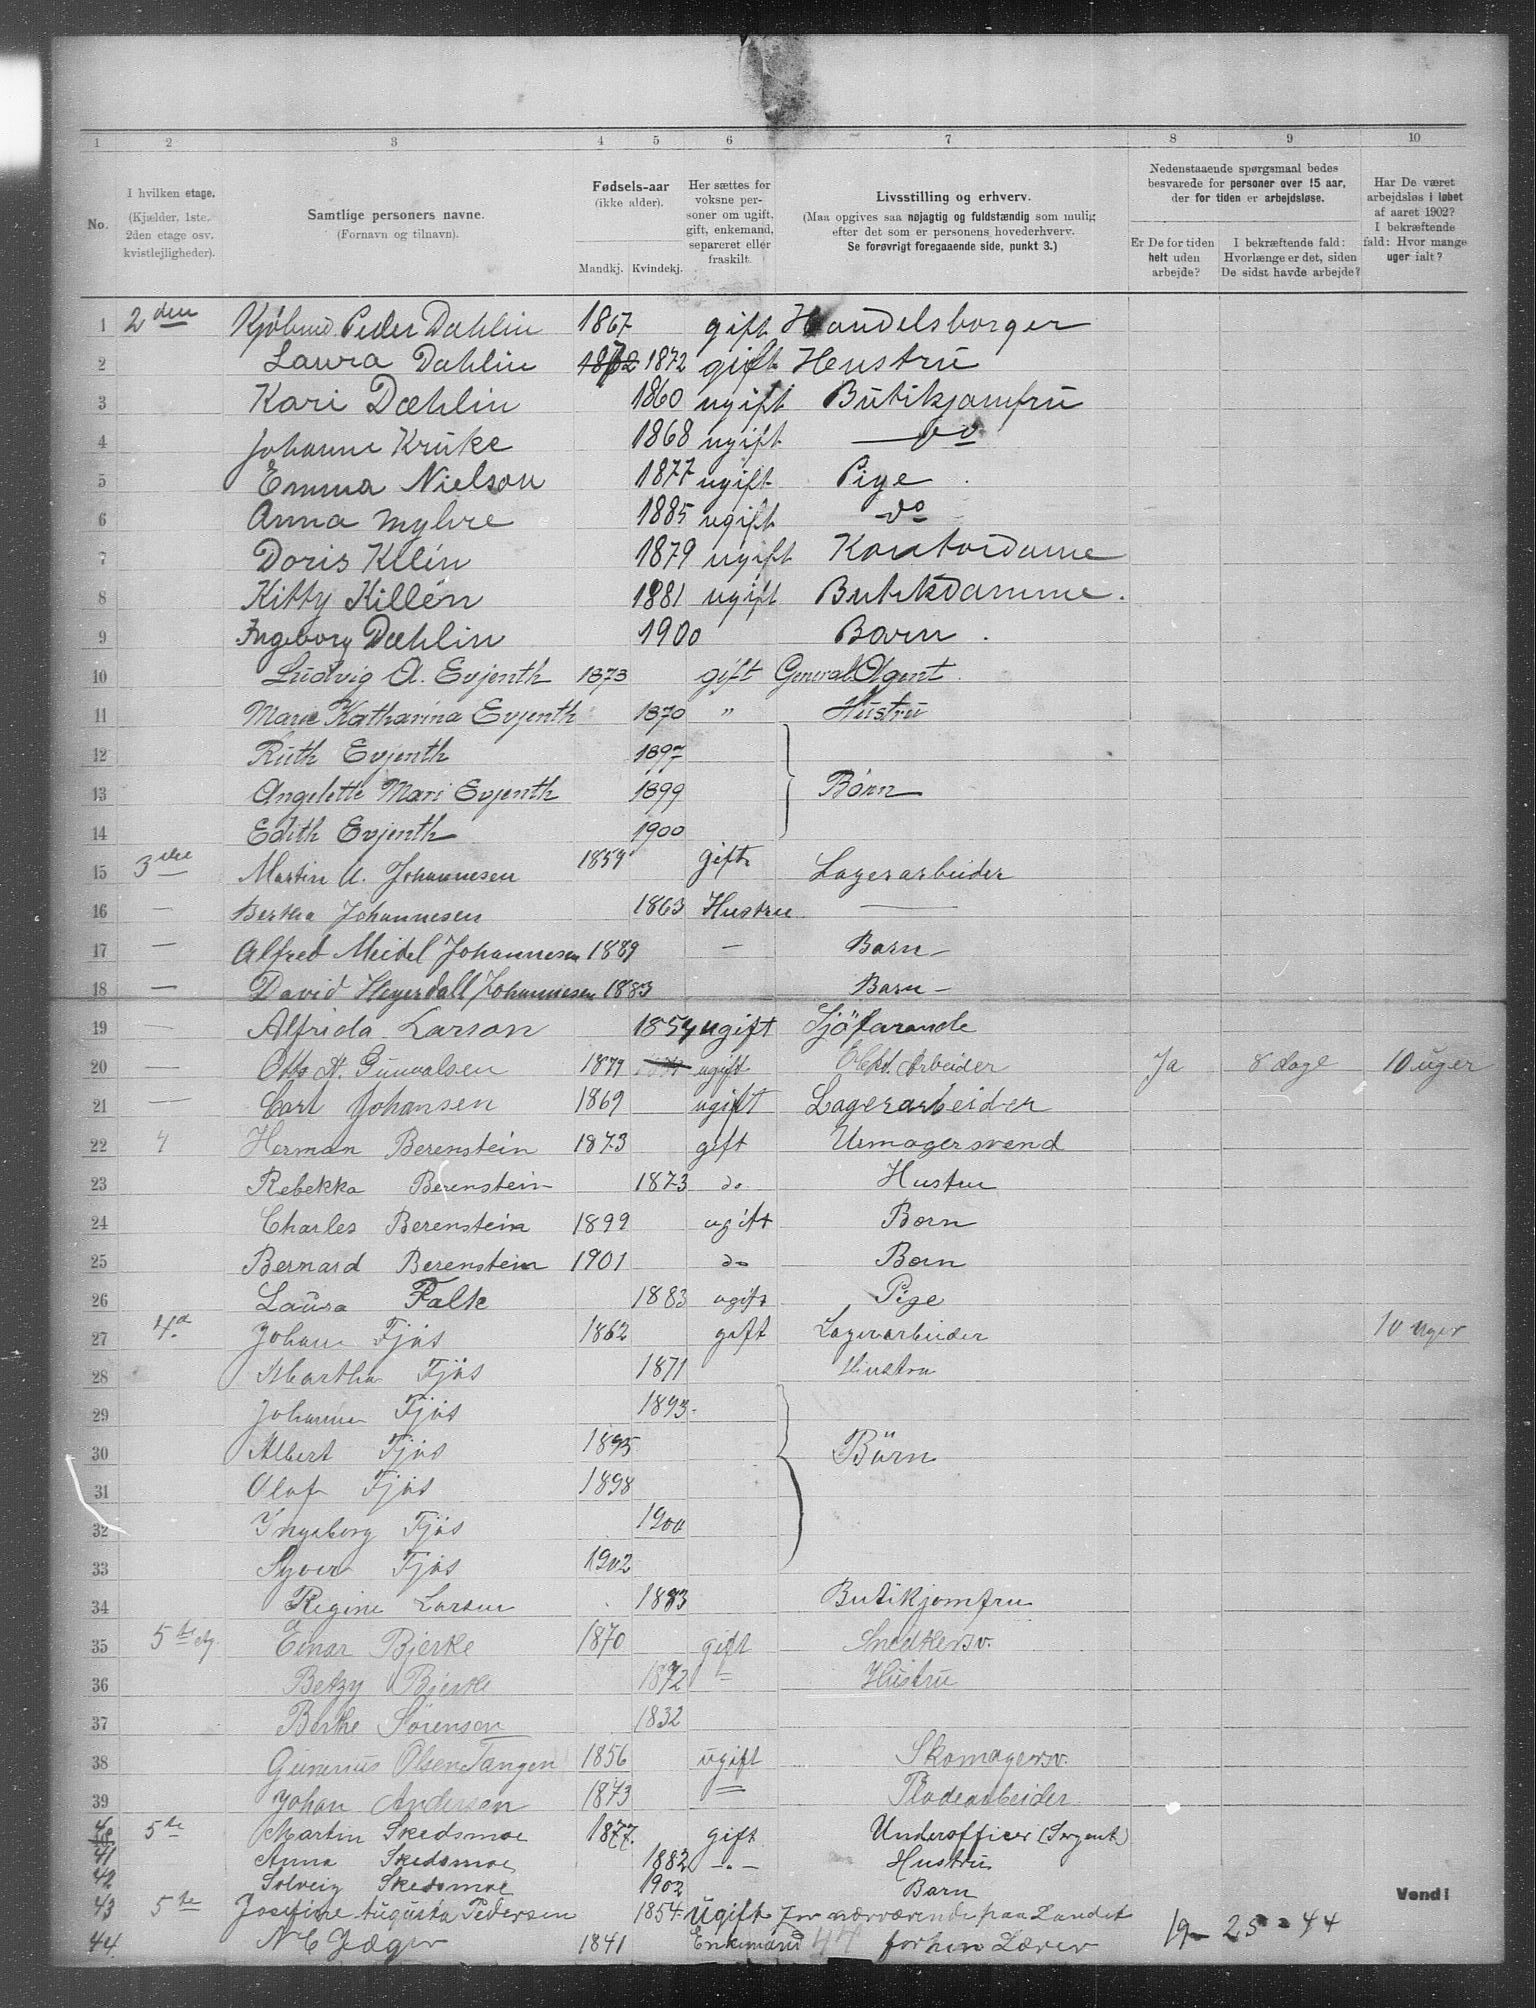 1 2 3 4 5 6 7 8 9 10
No.
I hvilken etage.
(Kjælder, 1ste, 2den etage osv. kvistlejligheder).
Samtlige personers navne.
(Fornavn og tilnavn).
Fødsels-aar
(ikke alder).
Mandkj. Kvindekj.
Her sættes for voksne personer om ugift, gift, enkemand, separeret eller fraskilt.
Livsstilling og erhverv.
(Maa opgives saa nøjagtig og fuldstændig som mulig efter det som er personens hovederhverv.
Se forøvrigt foregaaende side, punkt 3.)
Nedenstaaende spørgsmaal bedes besvarede for personer over 15 aar, der for tiden er arbejdsløse.
Er De for tiden helt uden arbejde?
I bekræftende fald: Hvorlænge er det, siden De sidst havde arbejde?
Har De været arbejdsløs i løbet af aaret 1902? I bekræftende fald: Hvor mange uger ialt?
1 2den Peder Dæhlin 1867 gift Handelsborger
2 Laura Dæhlin 1872 1872 gift Hustru
3 Kari Dæhlin 1860 ugift Butikjomfru
4 Johanne Kruke 1868 ugift — do
5 Emma Nielson 1877 ugift Pige
6 Anna Myhre 1885 ugift do
7 Doris Kllin 1879 ugift Kontordame
8 Kitty Killén 1881 ugift Butikdamme.
9 Ingeborg Dæhlin 1900 Barn.
10 Ludvig A. Evjenth 1873 gift General Agent.
11 Marie Katharina Evjenth 1870 " Hustru
12 Ruth Evjenth 1897
13 Angelette Mari Evjenth 1899 Börn
14 Edith Evjenth 1900
15 3die Martin A. Johannesen 1859 gift Lagerarbeider
16 — Bertha Johannesen 1863 Hustru —
17 — Alfred Meidel Johannesen 1889 — Barn —
18 — David Heyerdall Johannesen 1883 Barn —
19 — Alfrida Larson 1854 ugift Sjöfarande
20 — Otto H. Gunvalsen 1879 ugift Arbeider Ja 8 dage 10 uger
21 — Carl Johansen 1869 ugift Lagerarbeider
22 4 Herman Berenstein 1873 gift Urmagersvend
23 Rebekka Berenstein 1873 do Hustru
24 Charles Berenstein 1899 ugift Barn
25 Bernard Berenstein 1901 do Barn
26 Laura Falk 1883 ugift Pige
27 4a Johan Fjös 1862 gift Lagerarbeider 10 uger
28 Martha Fjös 1871 Hustru
29 Johanne Fjös 1893
30 Albert Fjös 1895 Börn
31 Olaf Fjös 1898
32 Ingeborg Fjös 1900
33 Syver Fjös 1902
34 Regine Larsen 1883 Butikjomfru
35 5te etg. Einar Bjerke 1870 gift Snedkersv.
36 Betzy Bjerke 1872 " Hustru
37 Berthe Sørenson 1832
38 Gunerius Olsen Tangen 1856 ugift Skomagersv.
39 Johan Anderson 1873 " Pladearbeider
40 5te Martin Skedsmoe 1877. gift Underofficer (Sergent)
41 Anna Skedsmoe 1882 -"- Hustru
42 Solveig Skedsmoe 1902 Barn
43 5te Josefine Augusta Pedersen 1854 Ugift For nærværende paa Landet
44 N C Jæger 1841 Enkemand 44 forhen Lærer
19 - 25 - 44
Vend!